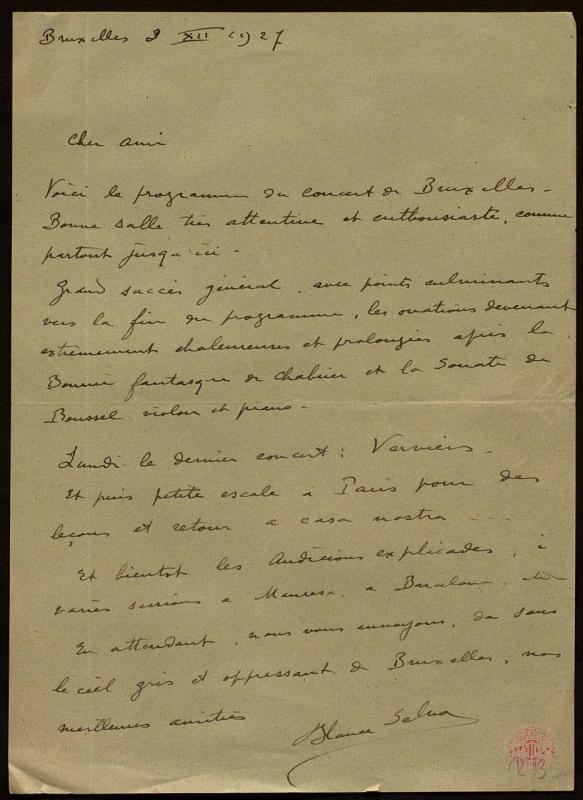 Bruxelles 2 XII 1927
Cher ami
Voici le programme du concert de Bruxelles -
Bonne salle très attentive et enthousiaste, comme
partout jusqu'ici -
Grand succès général, avec points culminants
vers la fin du programme, les ovations devenant
extrêmement chaleureuses et prolongées après la
Bourrée fantasque de Chabrier et la Sonate de
Roussel violon et piano -
Lundi le dernier concert : Verviers -
Et puis petite escale à Paris pour des
leçons et retour a casa nostra ...
Et bientôt les Audicions explicades, i
varies sessions a Manresa, a Barcelona, etc
En attendant, nous vous envoyons, de sous
le ciel gris et oppressant de Bruxelles, nos
meilleures amitiés
Blanca Selva